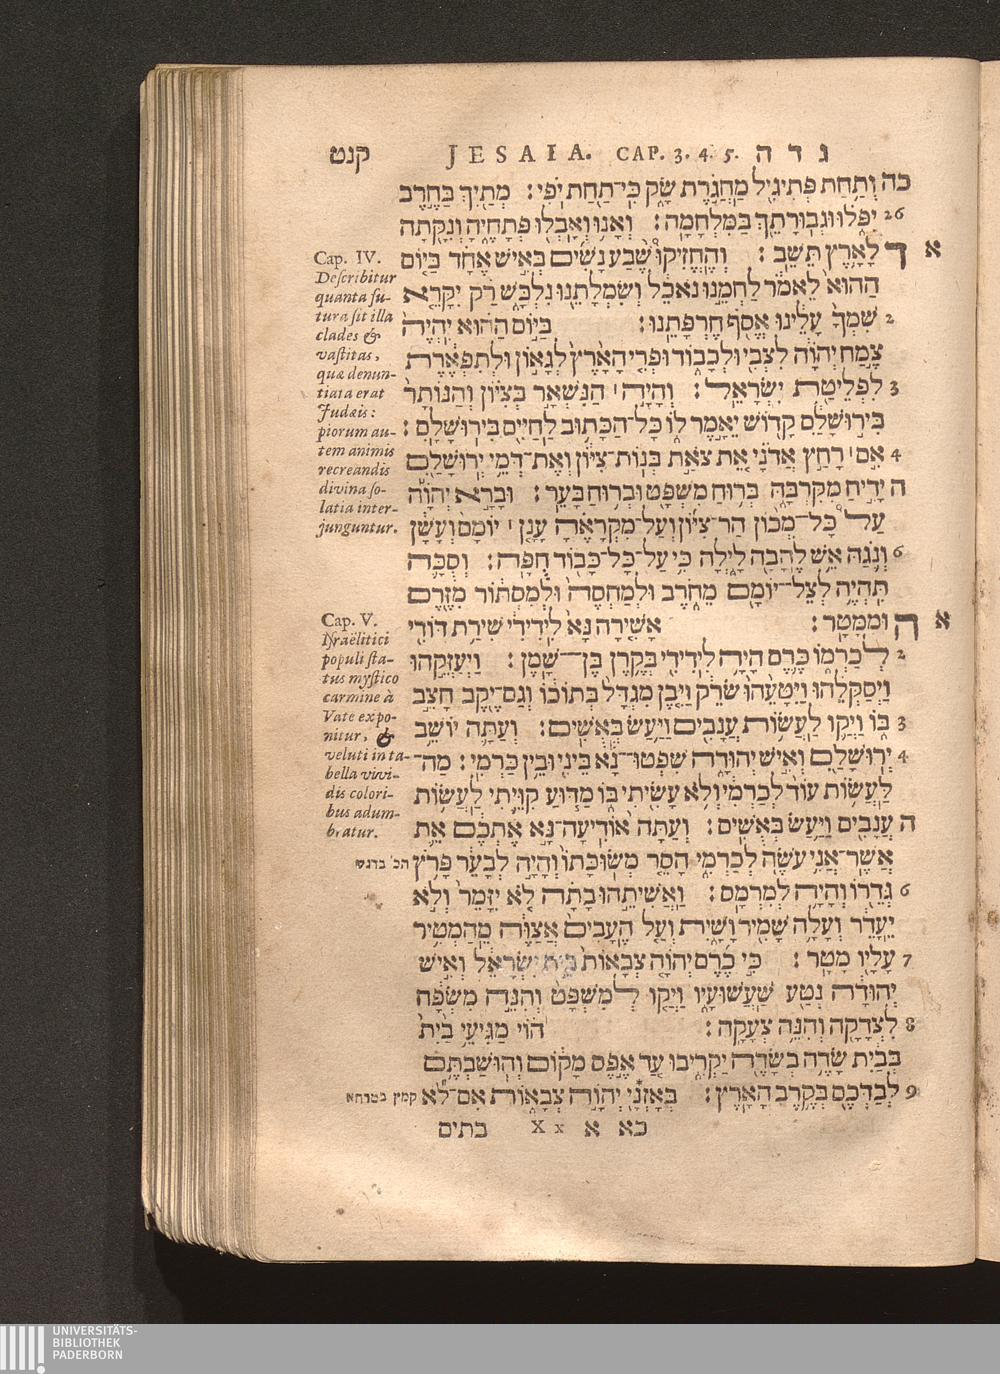 קנט JESAIA. CAP. 3. 4. 5. ג ד ה
כה וְתַחַת פְּתִיגִיל מַחֲגֹרֶת שָׂק כִּי־תַחַת יֹפִי׃ מְתַיִךְ בַּחֶרֶב
26 יִפֹּלוּ וּגְבוּרָתֵךְ בַּמִּלְחָמָה׃ וְאָנוּ וְאָבְלוּ פְּתָחֶיהָ וְנִקָּתָה
א ד לָאָרֶץ תֵּשֵׁב׃ וְהֶחֱזִיקוּ שֶׁבַע נָשִׁים בְּאִישׁ אֶחָד בַּיּוֹם
הַהוּא לֵאמֹר לַחְמֵנוּ נֹאכֵל וְשִׂמְלָתֵנוּ נִלְבָּשׁ רַק יִקָּרֵא
2 שִׁמְךָ עָלֵינוּ אֱסֹף חֶרְפָּתֵנוּ׃ בַּיּוֹם הַהוּא יִהְיֶה
צֶמַח יְהוָה לִצְבִי וּלְכָבוֹד וּפְרִי הָאָרֶץ לְגָאוֹן וּלְתִפְאֶרֶת
3 לִפְלֵיטַת יִשְׂרָאֵל׃ וְהָיָה ׀ הַנִּשְׁאָר בְּצִיּוֹן וְהַנּוֹתָר
בִּירוּשָׁלִַם קָדוֹשׁ יֵאָמֶר לוֹ כָּל־הַכָּתוּב לַחַיִּים בִּירוּשָׁלִָם׃
4 אִם ׀ רָחַץ אֲדֹנָי אֵת צֹאַת בְּנוֹת־צִיּוֹן וְאֶת־דְּמֵי יְרוּשָׁלִַם
ה יָדִיחַ מִקִּרְבָּהּ בְּרוּחַ מִשְׁפָּט וּבְרוּחַ בָּעֵר׃ וּבָרָא יְהוָה
עַל כָּל־מְכוֹן הַר־צִיּוֹן וְעַל־מִקְרָאֶהָ עָנָן ׀ יוֹמָם וְעָשָׁן
6 וְנֹגַהּ אֵשׁ לֶהָבָה לָיְלָה כִּי עַל־כָּל־כָּבוֹד חֻפָּה׃ וְסֻכָּה
תִּהְיֶה לְצֵל־יוֹמָם מֵחֹרֶב וּלְמַחְסֶה וּלְמִסְתּוֹר מִזֶּרֶם
א ה וּמִמָּטָר׃ אָשִׁירָה נָּא לִידִידִי שִׁירַת דּוֹדִי
2 לְכַרְמוֹ כֶּרֶם הָיָה לִידִידִי בְּקֶרֶן בֶּן־שָׁמֶן׃ וַיְעַזְּקֵהוּ
וַיְסַקְּלֵהוּ וַיִּטָּעֵהוּ שֹׂרֵק וַיִּבֶן מִגְדָּל בְּתוֹכוֹ וְגַם־יֶקֶב חָצֵב
3 בּוֹ וַיְקַו לַעֲשׂוֹת עֲנָבִים וַיַּעַשׂ בְּאֻשִׁים׃ וְעַתָּה יוֹשֵׁב
4 יְרוּשָׁלִַם וְאִישׁ יְהוּדָה שִׁפְטוּ־נָא בֵּינִי וּבֵין כַּרְמִי׃ מַה־
לַּעֲשׂוֹת עוֹד לְכַרְמִי וְלֹא עָשִׂיתִי בּוֹ מַדּוּעַ קִוֵּיתִי לַעֲשׂוֹת
ה עֲנָבִים וַיַּעַשׂ בְּאֻשִׁים׃ וְעַתָּה אוֹדִיעָה־נָּא אֶתְכֶם אֵת
אֲשֶׁר־אֲנִי עֹשֶׂה לְכַרְמִי הָסֵר מְשׂוּכָּתוֹ וְהָיָה לְבָעֵר פָּרֹץ
6 גְּדֵרוֹ וְהָיָה לְמִרְמָס׃ וַאֲשִׁיתֵהוּ בָתָה לֹא יִזָּמֵר וְלֹא
יֵעָדֵר וְעָלָה שָׁמִיר וָשָׁיִת וְעַל הֶעָבִים אֲצַוֶּה מֵהַמְטִיר
7 עָלָיו מָטָר׃ כִּי כֶרֶם יְהוָה צְבָאוֹת בֵּית יִשְׂרָאֵל וְאִישׁ
יְהוּדָה נְטַע שַׁעֲשׁוּעָיו וַיְקַו לְמִשְׁפָּט וְהִנֵּה מִשְׂפָּח
8 לִצְדָקָה וְהִנֵּה צְעָקָה׃ הוֹי מַגִּיעֵי בַיִת
בְּבַיִת שָׂדֶה בְשָׂדֶה יַקְרִיבוּ עַד אֶפֶס מָקוֹם וְהוּשַׁבְתֶּם
9 לְבַדְּכֶם בְּקֶרֶב הָאָרֶץ׃ בְּאָזְנָי יְהוָה צְבָאוֹת אִם־לֹא
כא א X x בתים
Cap. IV.
Describitur
quanta fu-
tura sit illa
clades &
vastitas,
quæ denun-
tiata erat
Judæis:
piorum au-
tem animis
recreandis
divina so-
latia inter-
junguntur.
Cap. V.
Israëlitici
populi sta-
tus mystico
carmine à
Vate expo-
nitur, &
veluti in ta-
bella vivi-
dis colori-
bus adum-
bratur.
הכ׳ בדגש
קמץ בטרחא
UNIVERSITÄTS-
BIBLIOTHEK
PADERBORN